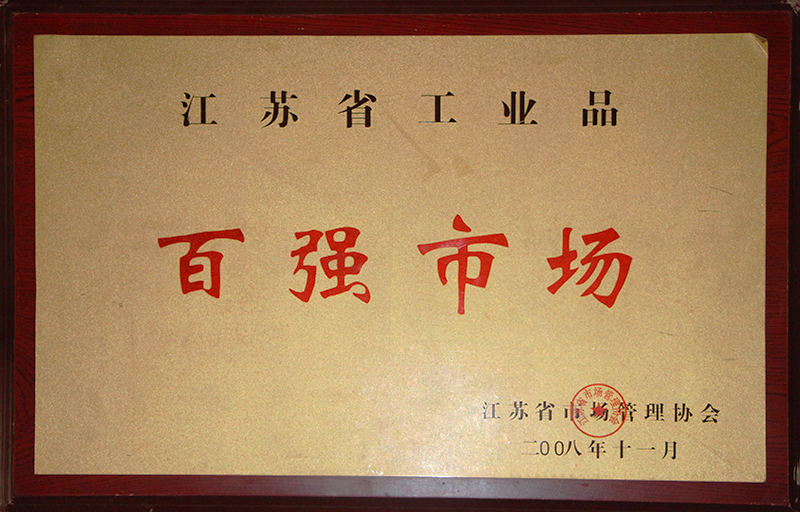 江苏省工业品
百强市场
江苏省市场管理协会
江苏省市场管理协会
二00八年十一月